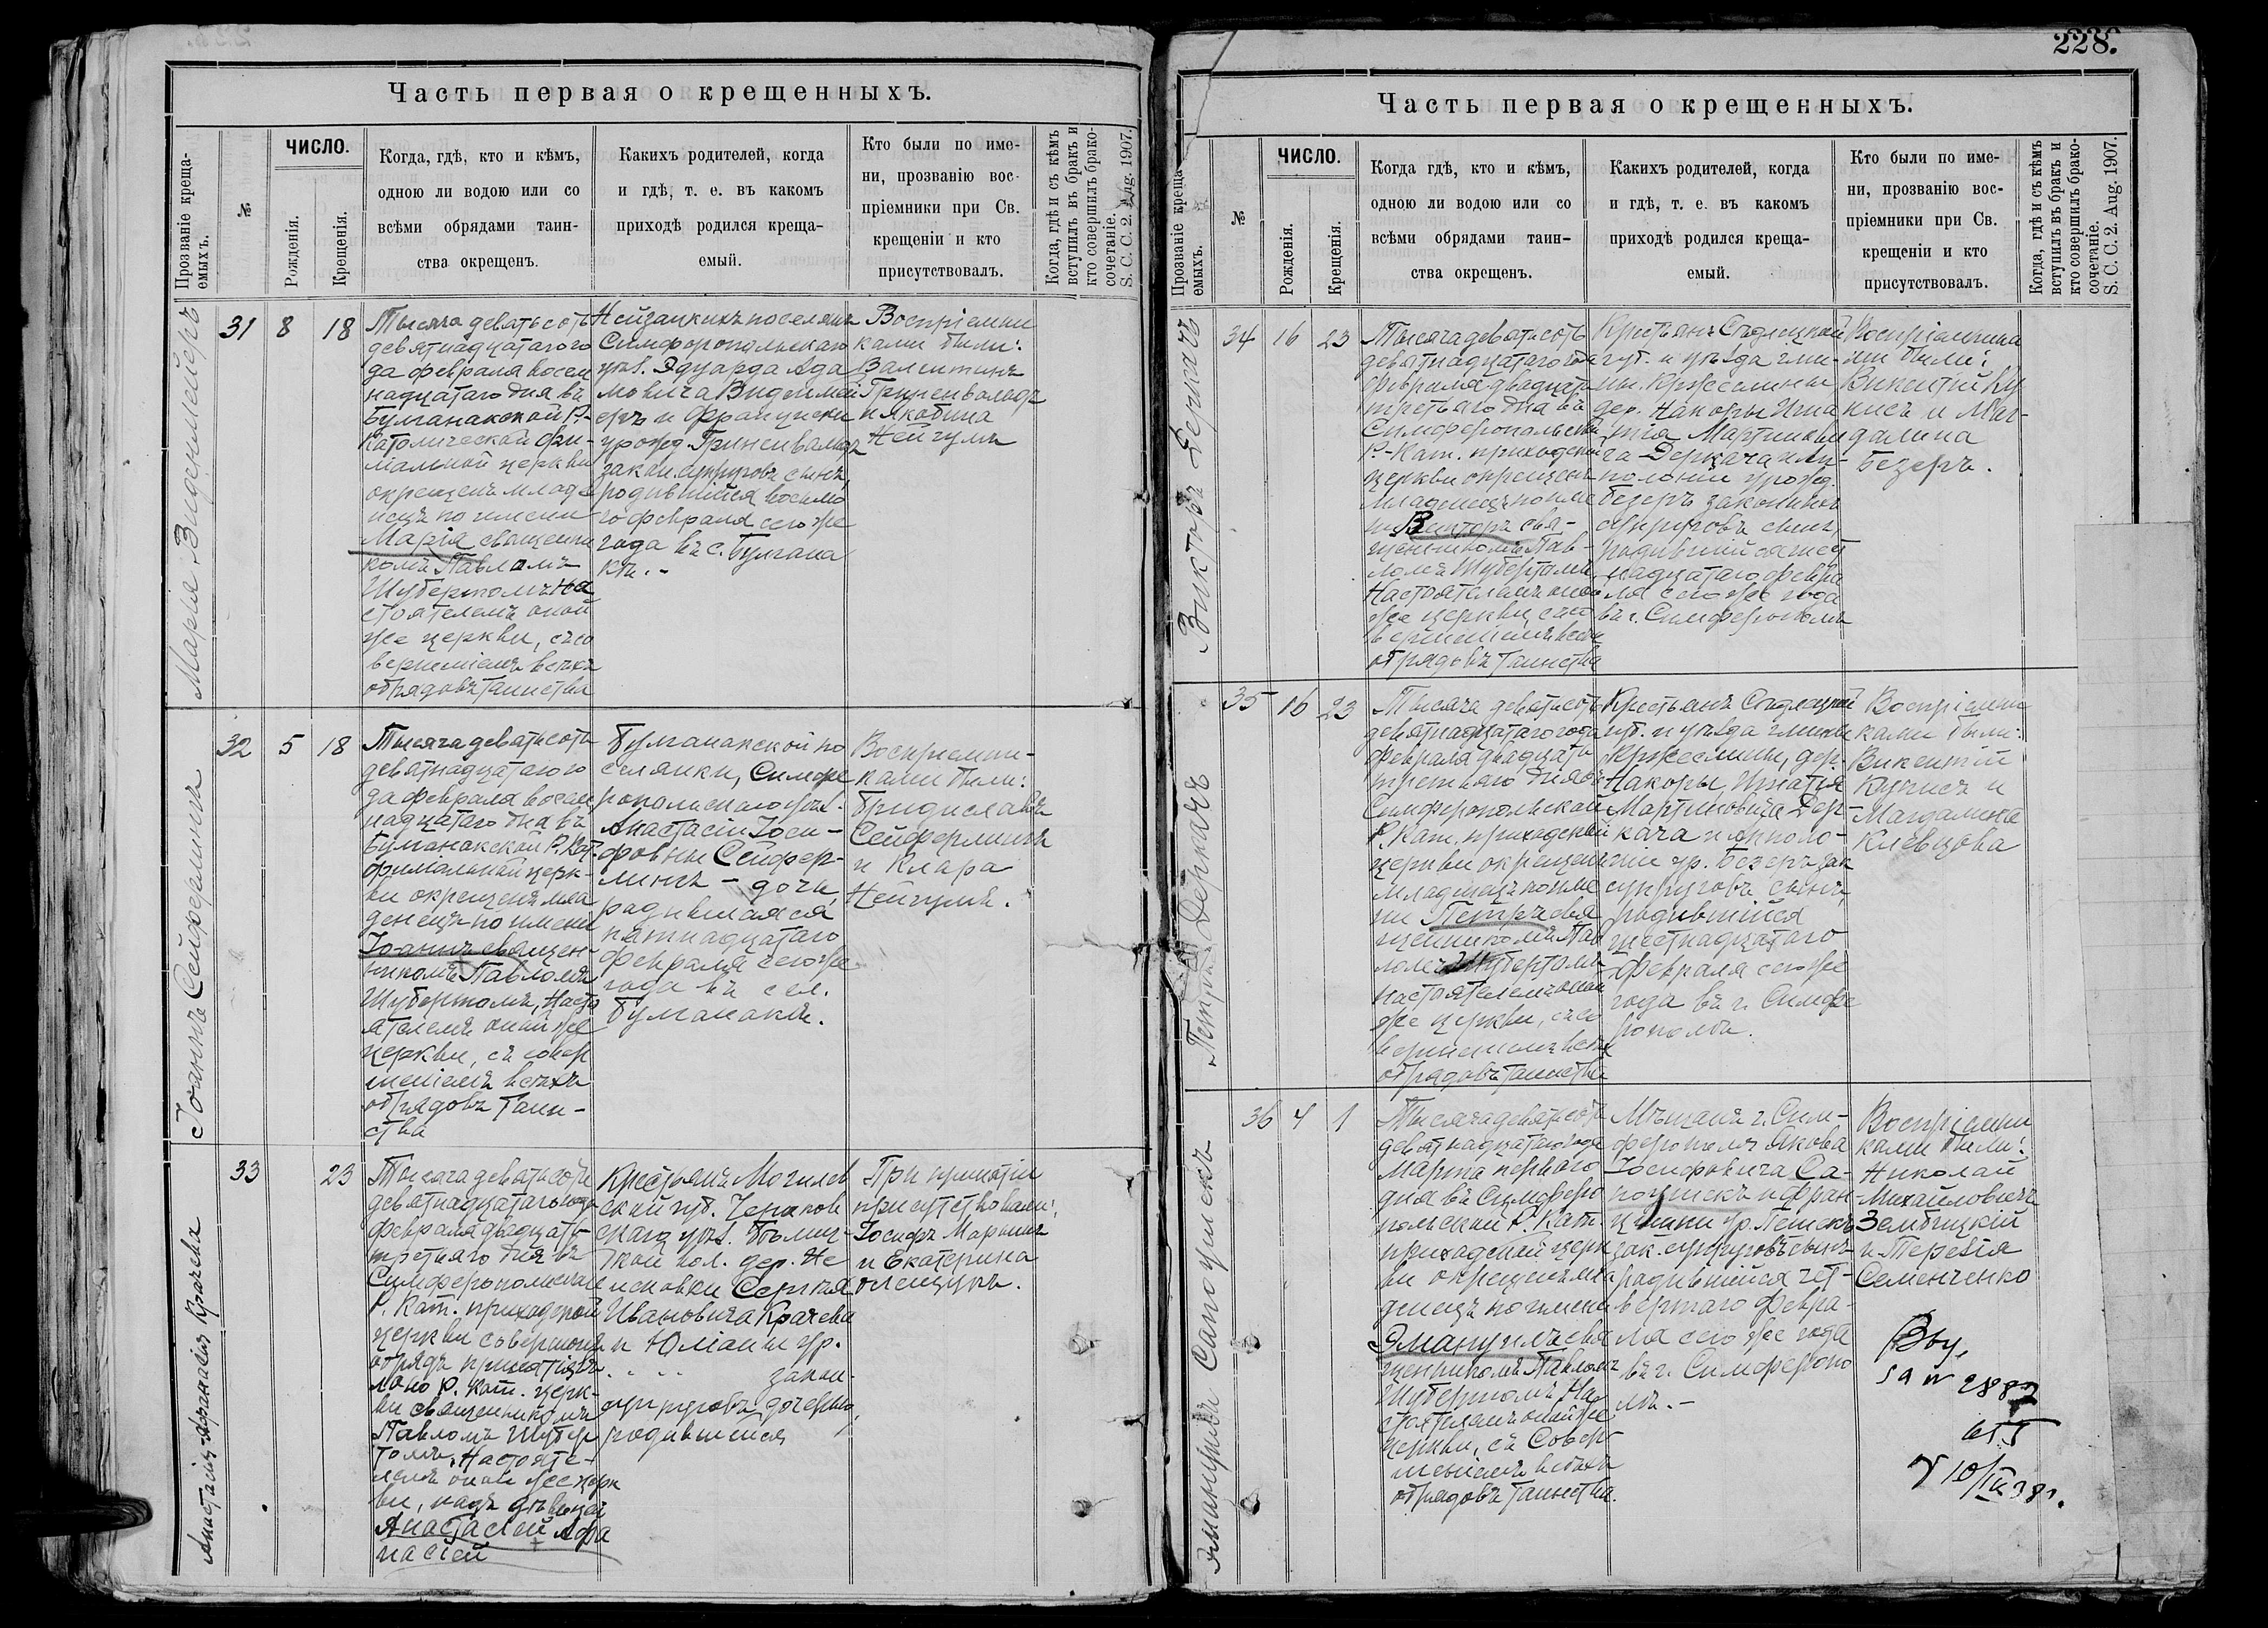 Часть первая о крещенныхъ.
Прозваніе креща-
емыхъ.
№
ЧИСЛО.
Рожденія.
Крещенія.
Когда, гдѣ, кто и кѣмъ,
одною ли водою или со
всѣми обрядами таин-
ства окрещенъ.
Какихъ родителей, когда
и гдѣ, т. е. въ какомъ
приходѣ родился креща-
емый.
Кто были по име-
ни, прозванію вос-
пріемники при Св.
крещеніи и кто
присутствовалъ.
Когда, гдѣ и съ кѣмъ
вступилъ въ бракъ и
кто совершилъ брако-
сочетаніе.
S. C. C. 2. Aug. 1907.
Марія Виденмейеръ
31
8
18
Тысяча девятьсотъ
девятнадцатаго го
да февраля восем
надцатаго дня въ
Булганакской Р.-
Католической фи-
ліальной церкви
окрещенъ младе
нецъ по имени
Марія священни
комъ Павломъ
Шубертомъ На
стоятелемъ оной
же церкви, съ со
вершеніемъ всѣхъ
обрядовъ таинства
Нейзацкихъ поселянъ
Симферопольскаго
уѣз. Эдуарда Ада
мовича Виденмей
еръ и Франциски
урожд. Гриненвальдъ
закон. супруговъ сынъ,
родившійся восьмо
го февраля сего же
года въ с. Булгана
кѣ.-
Воспріемни
ками были:
Валентинъ
Гриненвальдъ
и Якобина
Нейгумъ
Іоаннъ Сейферлингъ
32
5
18
Тысяча девятьсотъ
девятнадцатаго го
да февраля восем
надцатаго дня въ
Булганакской Р. Кат.
филіальной церк-
ви окрещенъ мла
денецъ по имени
Іоаннъ священ-
никомъ Павломъ
Шубертомъ, Насто
ятелемъ оной же
церкви, съ совер
шеніемъ всѣхъ
обрядовъ Таин-
ства
Булганакской по
селянки, Симфе
ропольскаго уѣз.
Анастасіи Іоси-
фовны Сейфер-
лингъ - дочь,
родившаяся
пятнадцатаго
февраля сего же
года въ сел.
Булганакѣ.
Воспріемни-
ками были:
Бридиславъ
Сейферлингъ
и Клара
Нейгумъ.
Анастасія-Афанасія Крачева
33
23
Тысяча девятьсотъ
девятнадцатаго года
февраля двадцать
третьяго дня въ
Симферопольской
Р. Кат. приходской
церкви совершонъ
обрядъ принятія въ
лоно Р. Кат. церк-
ви священникомъ
Павломъ Шубер
томъ, Настояте-
лемъ оной же церк
ви, надъ дѣвицей
Анастасіей Афа
насіей
Крестьянъ Могилев
ской губ. Чериков
скаго уѣз.
вол. дер. Не
Сергѣя
Ивановича Крачева
и Юліаны ур.
. . . . закон.
супруговъ дочерью,
родившейся
При принятіи
присутствовали:
Іосифъ Марынъ
и Екатерина
Олещукъ.
228.
Часть первая о крещенныхъ.
Прозваніе креща-
емыхъ.
№
ЧИСЛО.
Рожденія.
Крещенія.
Когда гдѣ, кто и кѣмъ,
одною ли водою или со
всѣми обрядами таин-
ства окрещенъ.
Какихъ родителей, когда
и гдѣ, т. е. въ какомъ
приходѣ родился креща-
емый.
Кто были по име-
ни, прозванію вос-
пріемники при Св.
крещеніи и кто
присутствовалъ.
Когда, гдѣ и съ кѣмъ
вступилъ въ бракъ и
кто совершилъ брако-
сочетаніе.
S. C. C. 2. Aug. 1907.
Викторъ Деркачъ
34
16
23
Тысяча девятьсотъ
девятнадцатаго года
февраля двадцать
третьяго дня въ
Симферопольской
Р.-Кат. приходской
церкви окрещенъ
младенецъ по име
ни Викторъ свя-
щенникомъ Пав-
ломъ Шубертомъ,
Настоятелемъ оной
же церкви, съ со
вершеніемъ всѣхъ
обрядовъ таинства
Крестьянъ Сѣдлецкой
губ. и уѣзда гми-
ны Кржеслины
дер. Какоры Игна
тія Мартинови
ча Деркача и Ап-
полоніи урожд.
Безеръ законныхъ
супруговъ сынъ,
родившійся шест
надцатаго февра
ля сего же года
въ г. Симферополѣ
Воспріемника
ми были:
Викентій Ку
нисъ и Маг-
далина
Безеръ.
Петръ Деркачъ
35
16
23
Тысяча девятьсотъ
девятнадцатаго года
февраля двадцать
третьяго дня въ
Симферопольской
Р. Кат. приходской
церкви окрещенъ
младенецъ по име
ни Петръ свя
щенникомъ Пав
ломъ Шубертомъ
настоятелемъ оной
же церкви, съ со
вершеніемъ всѣхъ
обрядовъ таинства
Крестьянъ Сѣдлецкой
губ. и уѣзда гмины
Кржеслины, дер.
Какоры, Игнатія
Мартиновича Дер-
кача и Апполо-
ніи ур. Безеръ зак
супруговъ сынъ,
родившійся
шестнадцатаго
февраля сего же
года въ г. Симфе
рополѣ.
Воспріемни
ками были:
Викентій
Кунисъ и
Магдалина
Клевцова
Эмануилъ Сапоцшекъ
36
4
1
Тысяча девятьсотъ
девятнадцатаго года
Марта перваго
дня въ Симферо
польской Р. Кат.
приходской церк
ви окрещенъ мла
денецъ по имени
Эмануилъ свя
щенникомъ Павломъ
Шубертомъ На
стоятелемъ оной же
церкви, съ Совер
шеніемъ всѣхъ
обрядовъ таинства.
Мѣщанъ г. Сим-
ферополя Якова
Іосифовича Са-
поцшекъ и Фран
цишки ур. Пешекъ
зак. супруговъ сынъ
родившійся чет-
вертаго февра-
ля сего же года
въ г. Симферопо
лѣ.-
Воспріемни
ками были:
Николай
Михайловичъ
Зембицкій
и Терезія
Семенченко